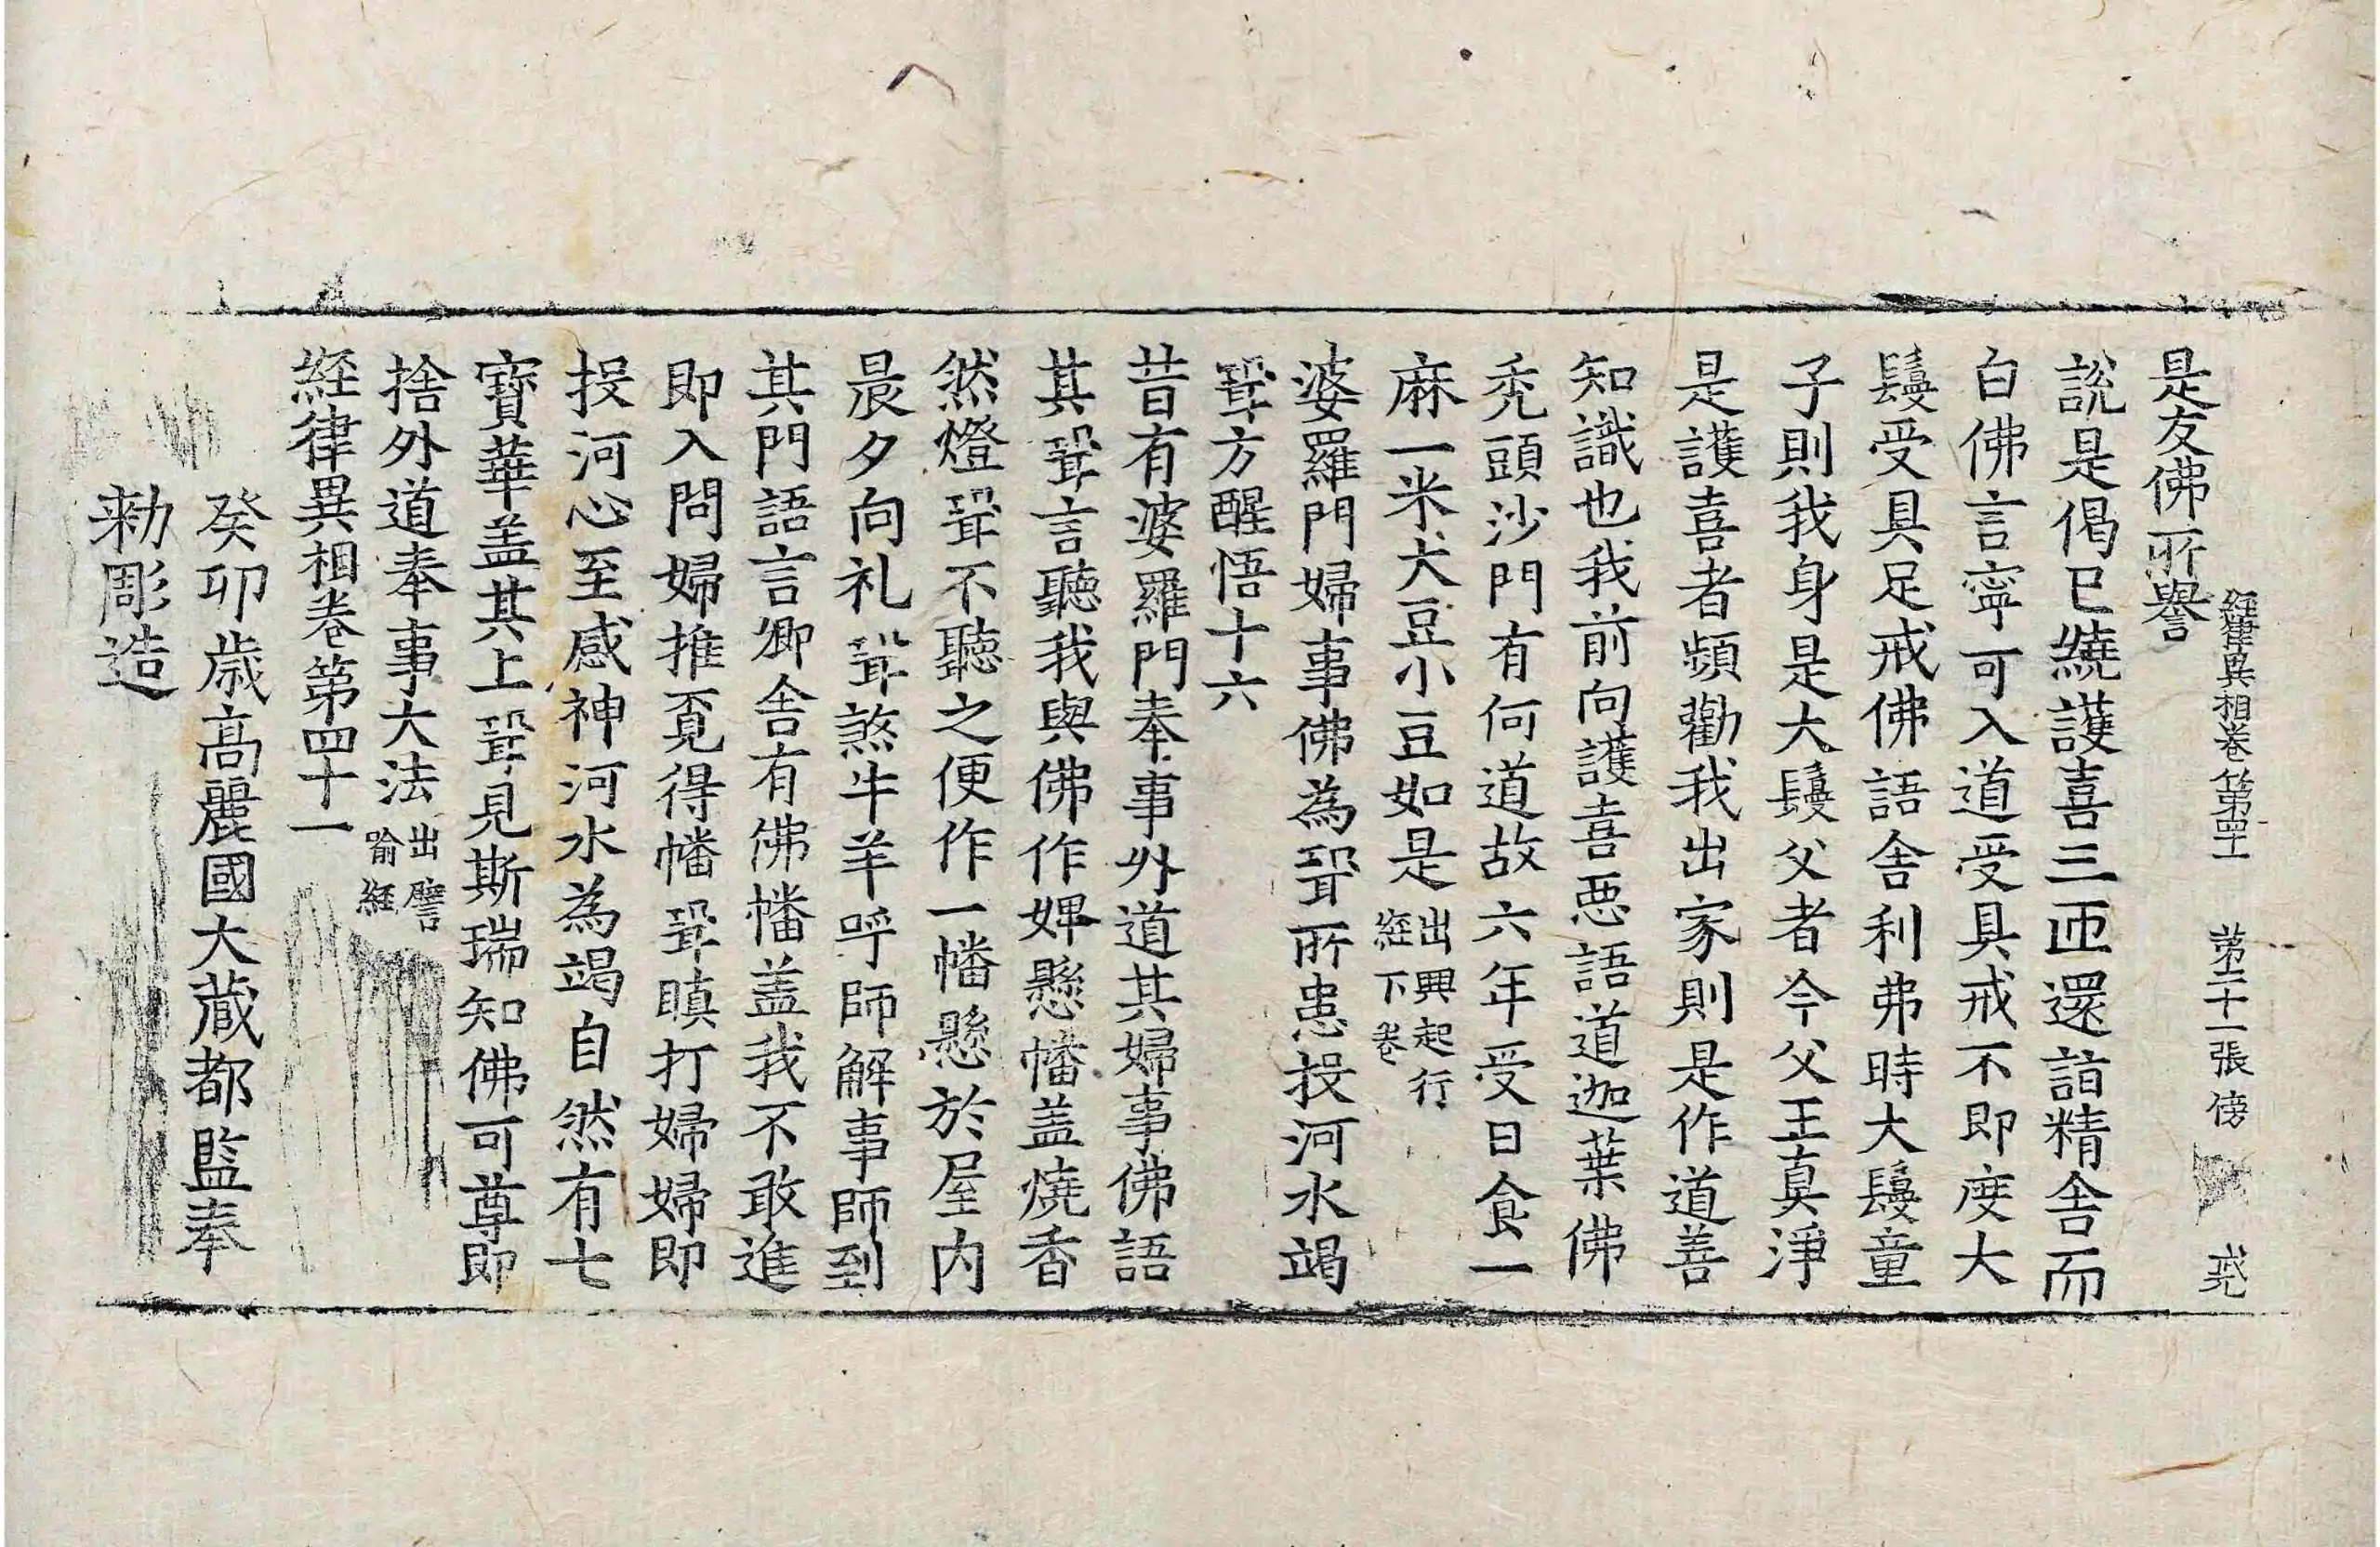 經律異相卷第四十一 第二十一張 傍
是友佛所譽
說是偈已繞護喜三匝還詣精舍而
白佛言寧可入道受具戒不即度大
鬘受具足戒佛語舍利弗時大鬘童
子則我身是大鬘父者今父王真淨
是護喜者頻勸我出家則是作道善
知識也我前向護喜惡語道迦葉佛
禿頭沙門有何道故六年受日食一
麻一米大豆小豆如是出興起行經下卷
婆羅門婦事佛為聟所患投河水竭
聟方醒悟十六
昔有婆羅門奉事外道其婦事佛語
其聟言聽我與佛作婢懸幡盖燒香
然燈聟不聽之便作一幡懸於屋内
晨夕向礼聟煞牛羊呼師解事師到
其門語言卿舍有佛幡盖我不敢進
即入問婦推覔得幡聟瞋打婦婦即
投河心至感神河水為竭自然有七
寶華盖其上聟見斯瑞知佛可尊即
捨外道奉事大法出譬喻經
經律異相卷第四十一
癸卯歲高麗國大藏都監奉
勑彫造